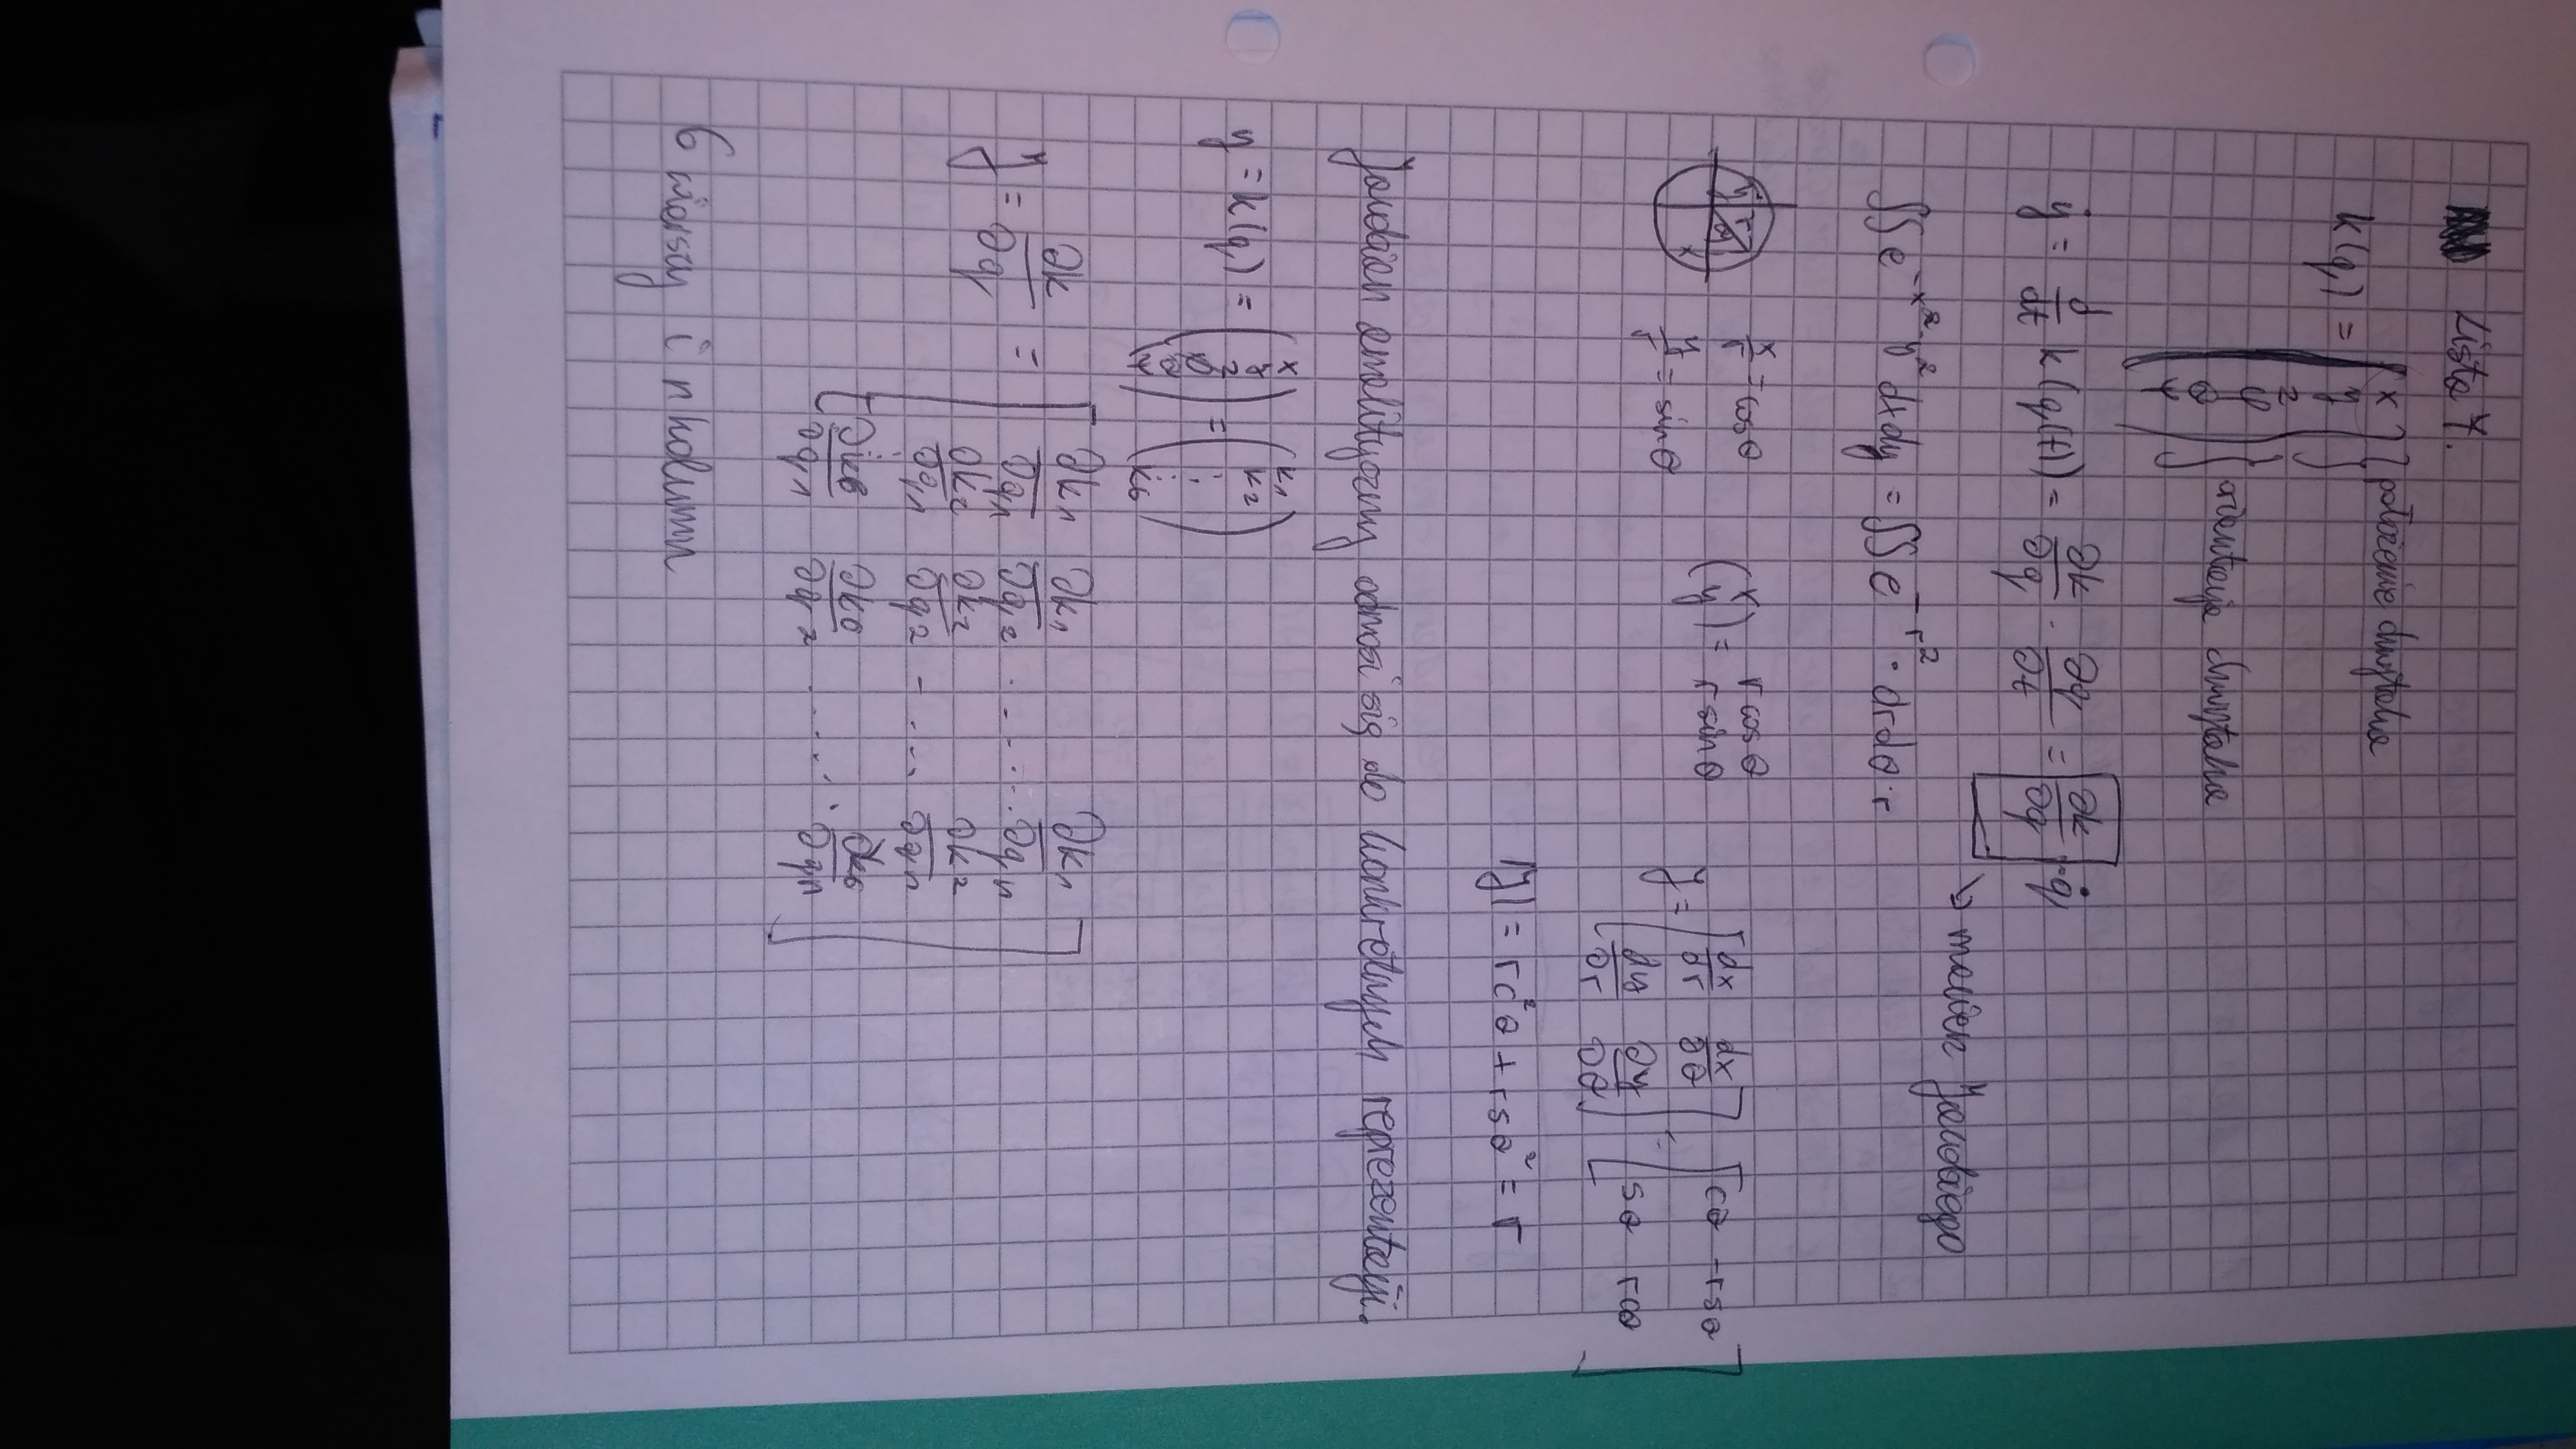 Lista 7.
k(q) = (x y z φ θ ψ) } położenie chwytaka
} orientacja chwytaka
ẏ = d/dt k(q(t)) = ∂k/∂q · ∂q/∂t = [∂k/∂q] · q̇
↘ macierz Jacobiego
∬ e^(-x²-y²) dxdy = ∬ e^(-r²) · drdθ·r
x/r = cosθ
y/r = sinθ
(x y) = r cosθ
r sinθ
J = [dx/dr dx/∂θ
dy/∂r ∂y/∂θ] = [cθ -rsθ
sθ rcθ]
|J| = rc²θ + rsθ² = r
Jacobian analityczny odnosi się do konkretnych reprezentacji.
y = k(q) = (x y z φ θ ψ) = (k₁ k₂ ⋮ k₆)
J = ∂k/∂q = [∂k₁/∂q₁ ∂k₁/∂q₂ ..... ∂k₁/∂qₙ
∂k₂/∂q₁ ∂k₂/∂q₂ - ... ∂k₂/∂qₙ
⋮
∂k₆/∂q₁ ∂k₆/∂q₂ ..... ∂k₆/∂qₙ]
6 wierszy i n kolumn